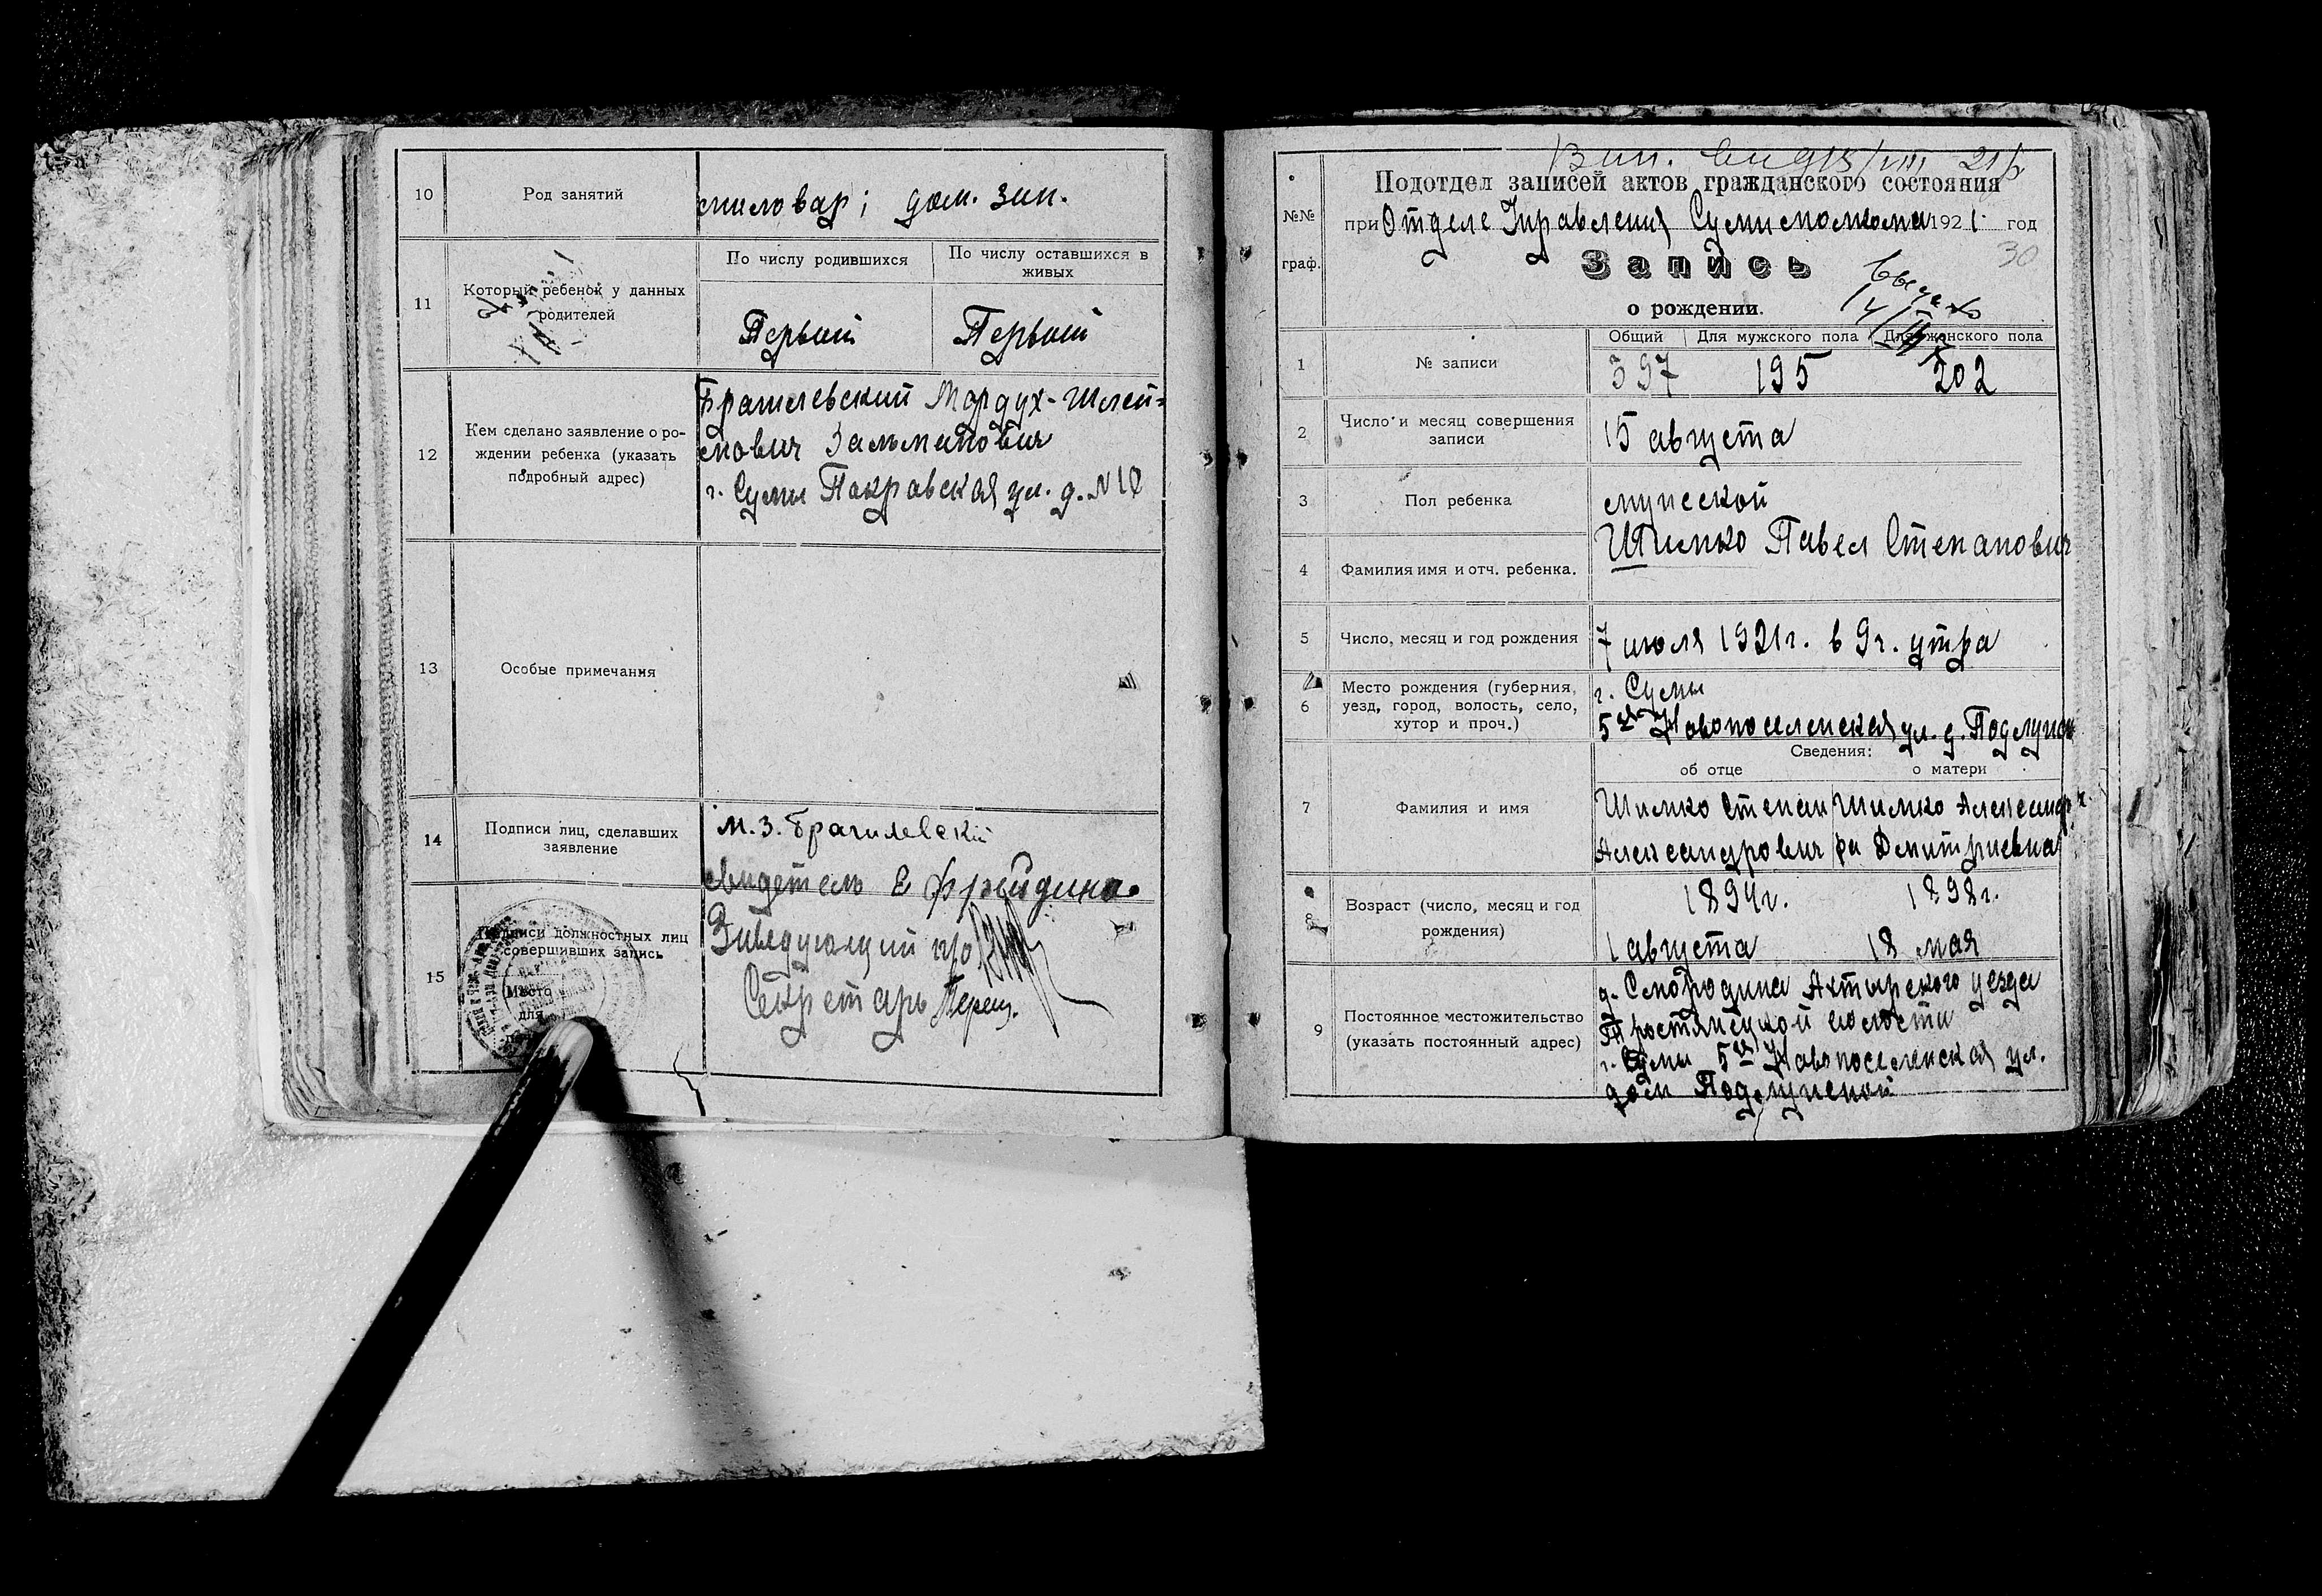 10 Род занятий мыловар; дом. зан.
11 Который ребенок у данных родителей
По числу родившихся
По числу оставшихся в живых
Первый Первый
12 Кем сделано заявление о ро-
ждении ребенка (указать
подробный адрес)
Брагилевский Мордух-Шлей-
мович Зальманович
г. Сумы Покровская ул. д. N 10
13 Особые примечания
14 Подписи лиц, сделавших
заявление
М. З. Брагилевскій
свидетель Е Фрейдина
15 Подписи должностных лиц
совершивших запись
Место
для
Заведующий п/о
Секретарь
№№
граф.
Подотдел записей актов гражданского состояния
при Отделе Управления 1921 год
30
Запись
о рождении.
1 № записи
Общий Для мужского пола Для женского пола
397 195 202
2 Число и месяц совершения
записи
15 августа
3 Пол ребенка
мужской
4 Фамилия имя и отч. ребенка.
Шимко Павел Степанович
5 Число, месяц и год рождения
7 июля 1921г. в 9ч. утра
6 Место рождения (губерния,
уезд, город, волость, село,
хутор и проч.)
г. Сумы
5ая Новопоселенская ул. д.
Сведения:
об отце о матери
7 Фамилия и имя
Шимко Степан Александрович
Шимко Александра Дмитриевна
8 Возраст (число, месяц и год
рождения)
1894г. 1898г.
1 августа 18 мая
9 Постоянное местожительство
(указать постоянный адрес)
д. Смородина Ахтырского уезда
Тростянецкой волости
г. Сумы 5ая Новопоселенская ул.
дом